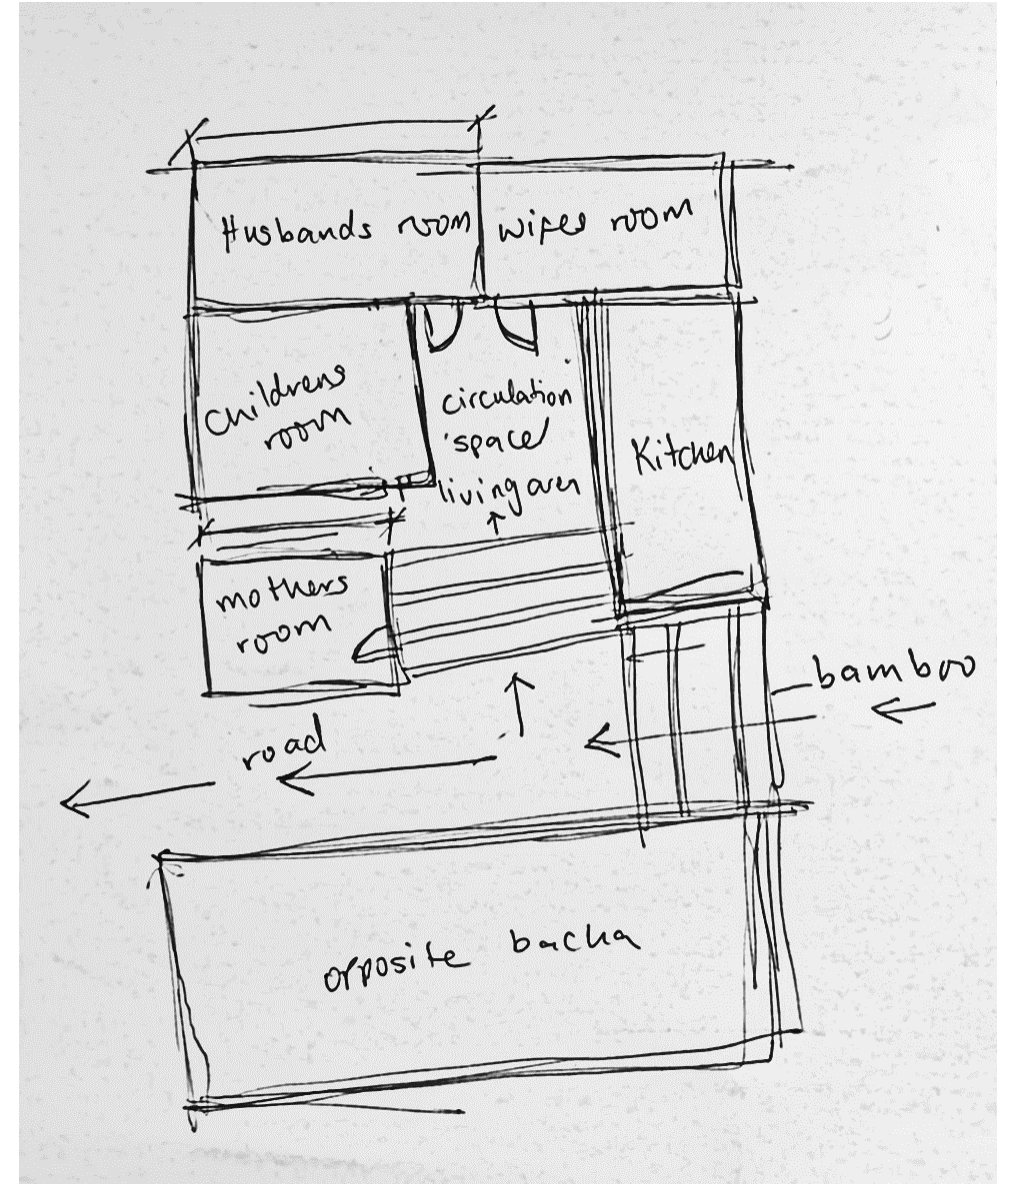 Husbands room
wifes room
Childrens
room
circulation
space
living area
Kitchen
mothers
room
bamboo
road
opposite bacha